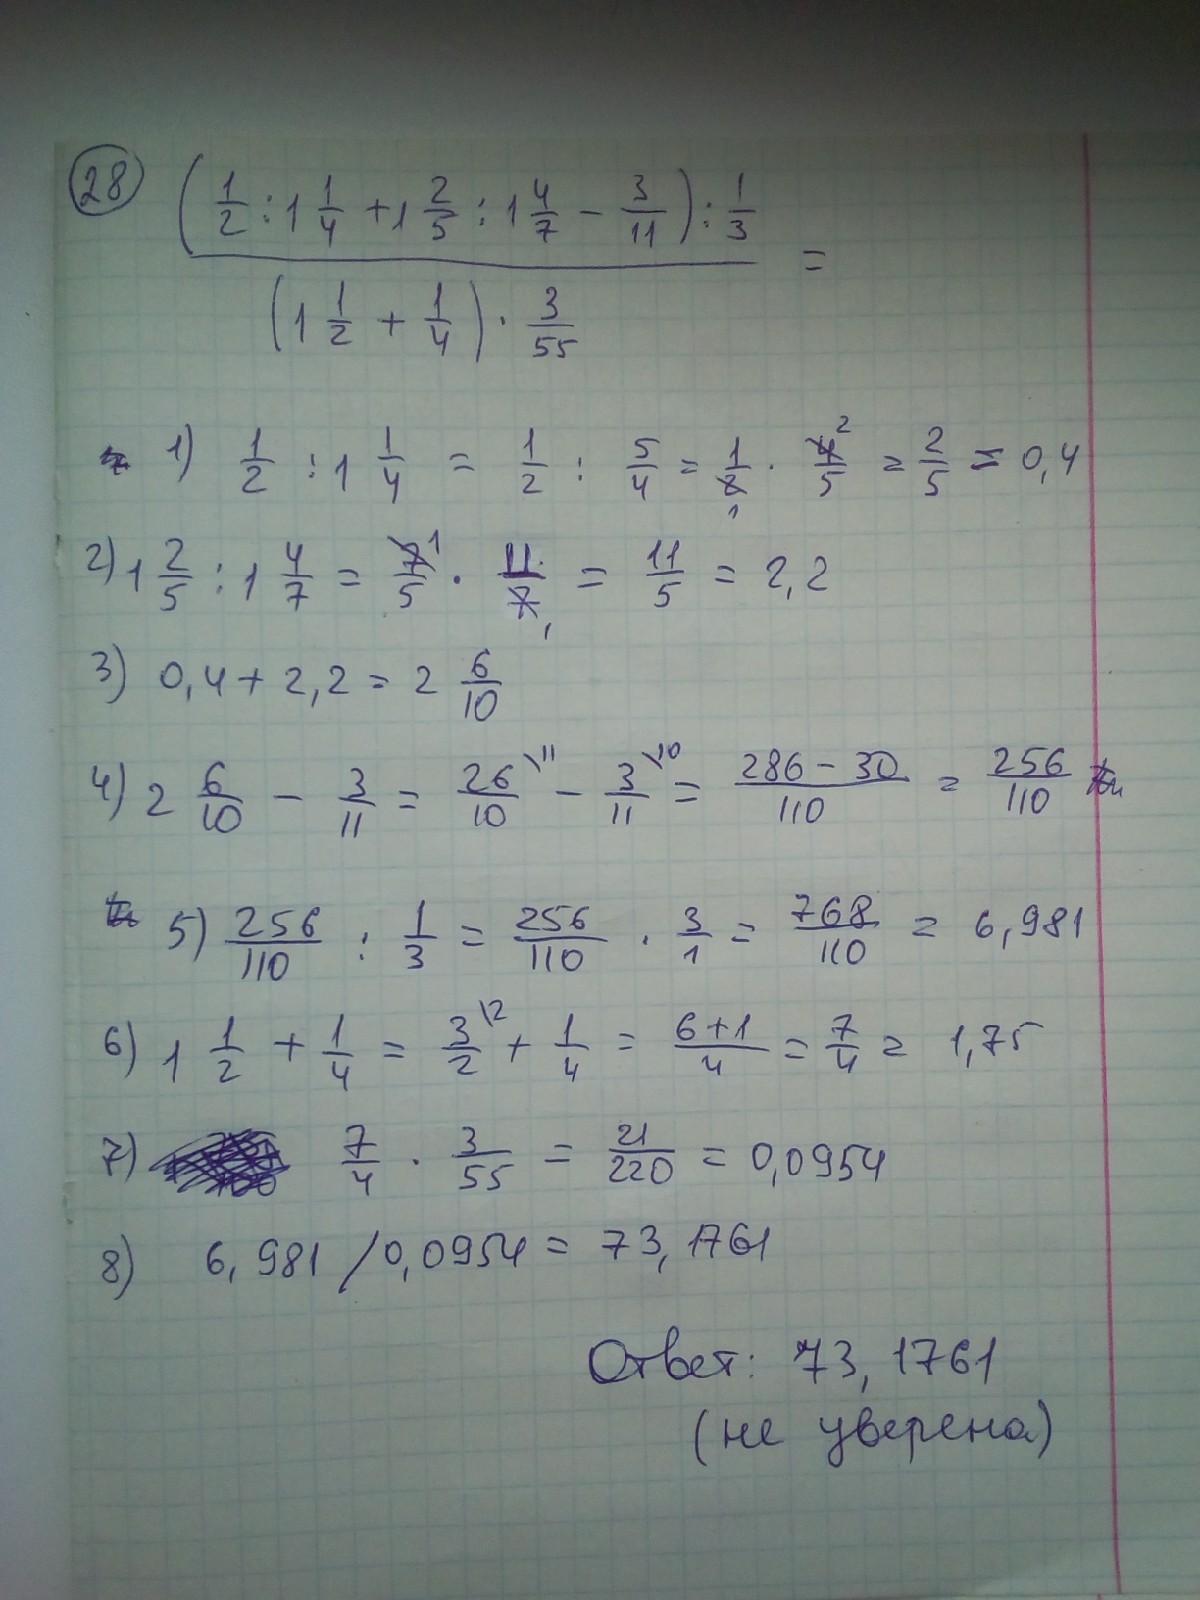 28 (1/2 : 1 1/4 + 1 2/5 : 1 4/7 - 3/11) : 1/3
(1 1/2 + 1/4) · 3/55 =
1) 1/2 : 1 1/4 = 1/2 : 5/4 = 1/2 1 · 4/5 2 = 2/5 = 0,4
2) 1 2/5 : 1 4/7 = 7/5 1 · 11/7 1 = 11/5 = 2,2
3) 0,4 + 2,2 = 2 6/10
4) 2 6/10 - 3/11 = 26/10 \11 - 3/11 \10 = 286 - 30/110 = 256/110
5) 256/110 : 1/3 = 256/110 · 3/1 = 768/110 = 6,981
6) 1 1/2 + 1/4 = 3/2 \2 + 1/4 = 6+1/4 = 7/4 = 1,75
7) 7/4 · 3/55 = 21/220 = 0,0954
8) 6,981 / 0,0954 = 73,1761
Ответ: 73,1761
(не уверена)